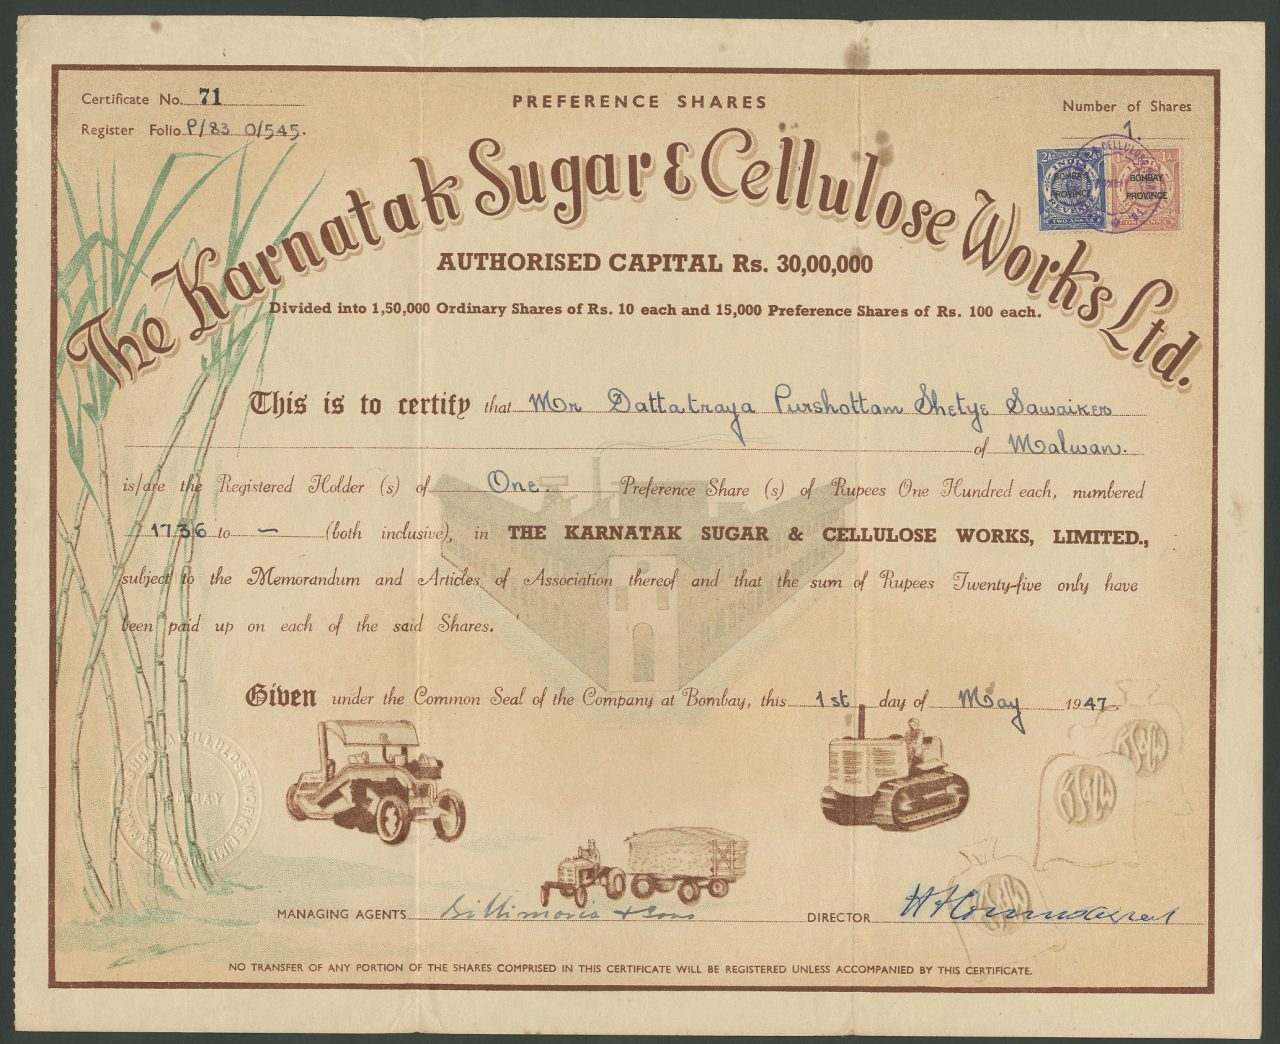 Certificate No. 71
Register Folio P/83 O/545.
PREFERENCE SHARES
Number of Shares
1.
2As INDIA 2As
BOMBAY
PROVINCE
REVENUE
TWO ANNAS
1A.
BOMBAY
PROVINCE
The Karnatak Sugar & Cellulose Works Ltd.
AUTHORISED CAPITAL Rs. 30,00,000
Divided into 1,50,000 Ordinary Shares of Rs. 10 each and 15,000 Preference Shares of Rs. 100 each.
This is to certify that Mr Dattatraya Purshottam Shetye Sawaiker
of Malwan.
is/are the Registered Holder (s) of One. Preference Share (s) of Rupees One Hundred each, numbered
1736 to — (both inclusive), in THE KARNATAK SUGAR & CELLULOSE WORKS, LIMITED.,
subject to the Memorandum and Articles of Association thereof and that the sum of Rupees Twenty-five only have
been paid up on each of the said Shares.
Given under the Common Seal of the Company at Bombay, this 1st day of May 1947.
BOMBAY
MANAGING AGENTS Billimoria & Sons
DIRECTOR
NO TRANSFER OF ANY PORTION OF THE SHARES COMPRISED IN THIS CERTIFICATE WILL BE REGISTERED UNLESS ACCOMPANIED BY THIS CERTIFICATE.